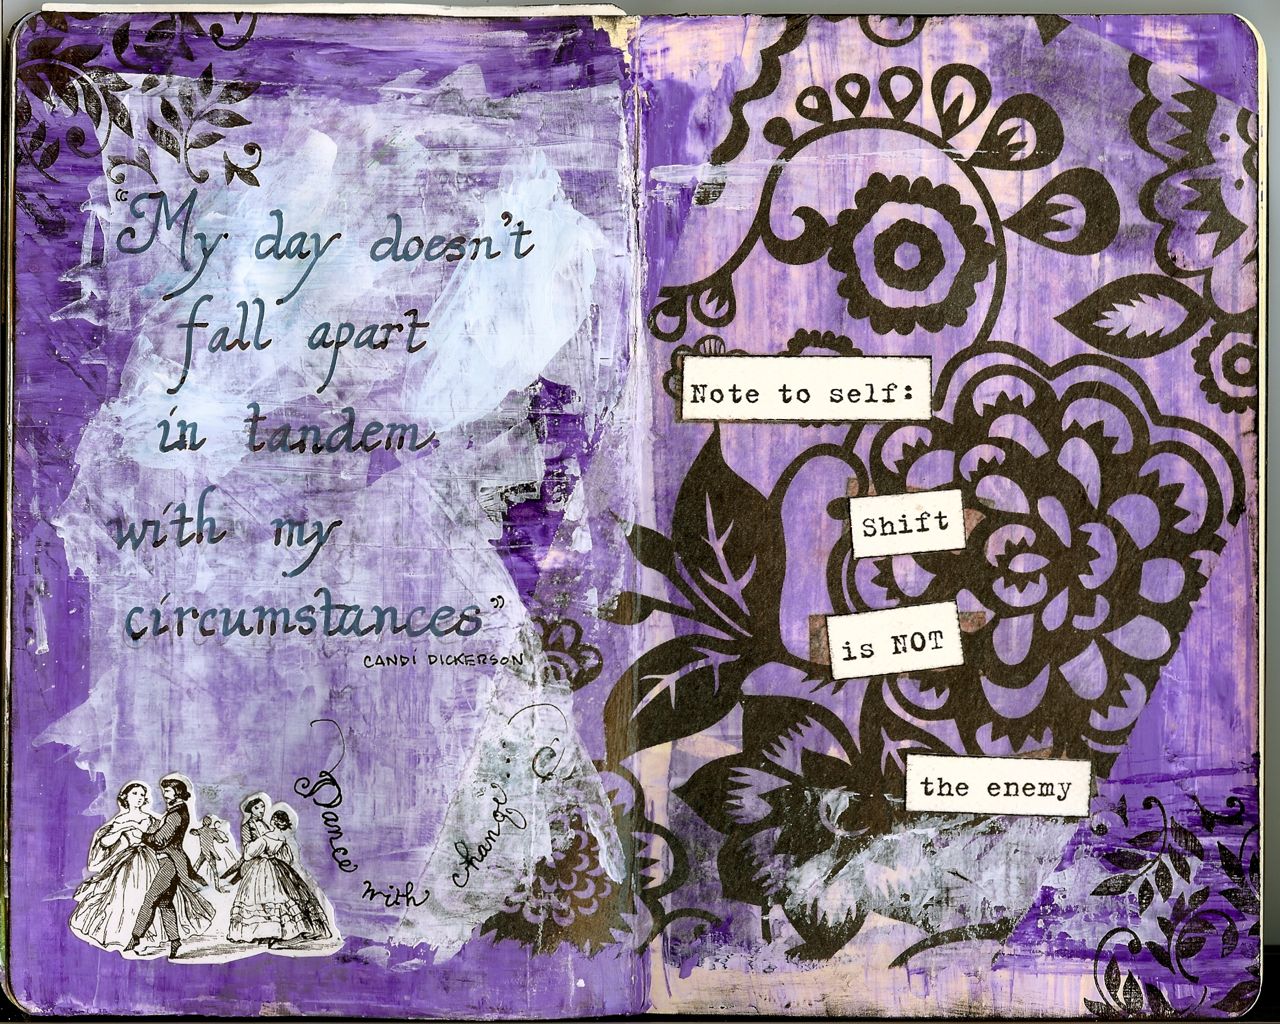 "My day doesn't
fall apart
in tandem
with my
circumstances"
CANDI DICKERSON
Dance
with
change...
Note to self:
Shift
is NOT
the enemy